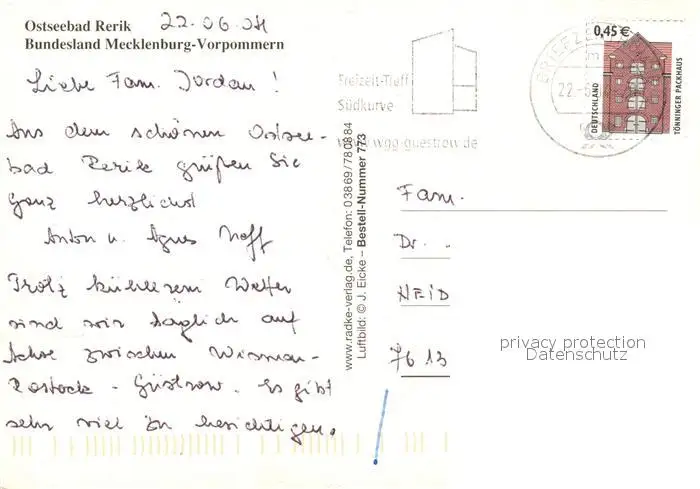 Ostseebad Rerik
Bundesland Mecklenburg-Vorpommern
22.06.04
Liebe Fam. Jordan!
Aus dem schönen Ostsee-
bad Rerik grüßen Sie
ganz herzlichst
Anton u. Agnes
Trotz kühlerem Wetter
sind wir täglich auf
Achse zwischen Wismar-
Rostock - Güstrow. Es gibt
sehr viel zu besichtigen.
www.radke-verlag.de, Telefon: 03869/780884
Luftbild: © J. Eicke – Bestell-Nummer 773
Freizeit-Treff
Südkurve
www.wgg-guestrow.de
BRIEFZE
22.-6
0,45 €
DEUTSCHLAND
TÖNNINGER PACKHAUS
Fam.
Dr.
HEID
7613
privacy protection
Datenschutz